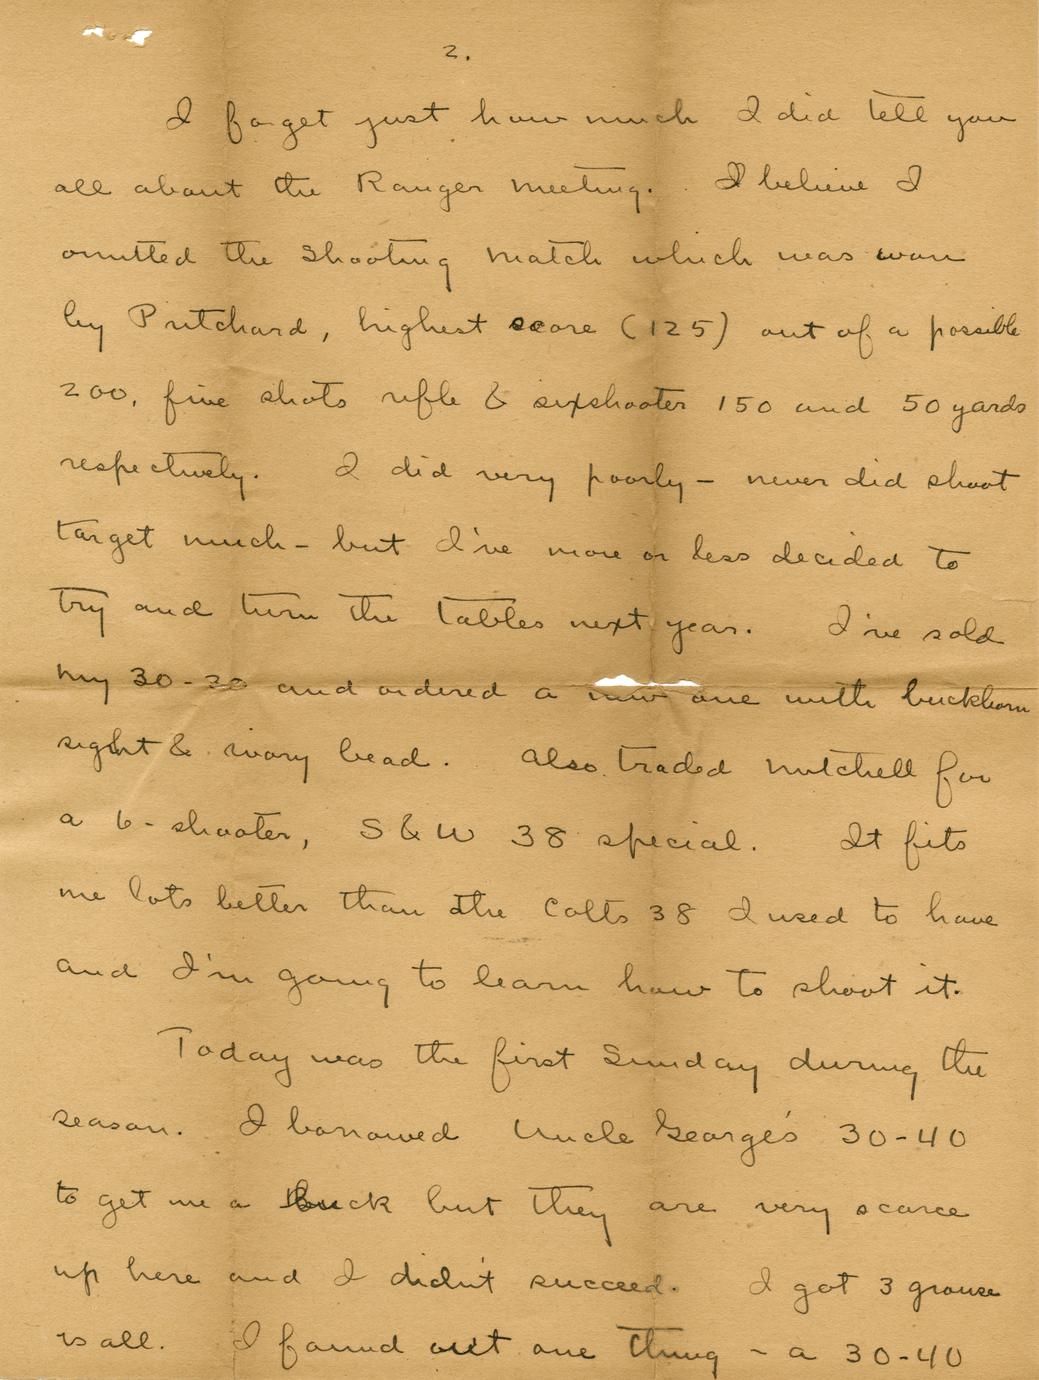 2.
I forget just how much I did tell you
all about the Ranger meeting. I believe I
omitted the shooting match which was won
by Pritchard, highest score (125) out of a possible
200, five shots rifle & sixshooter 150 and 50 yards
respectively. I did very poorly - never did shoot
target much - but I've more or less decided to
try and turn the tables next year. I've sold
my 30-30 and ordered a new one with buckhorn
sight & ivory bead. Also traded Mitchell for
a 6-shooter, S & W 38 special. It fits
me lots better than the Colts 38 I used to have
and I'm going to learn how to shoot it.
Today was the first Sunday during the
season. I borrowed Uncle George's 30-40
to get me a buck but they are very scarce
up here and I didn't succeed. I got 3 grouse
is all. I found out one thing - a 30-40